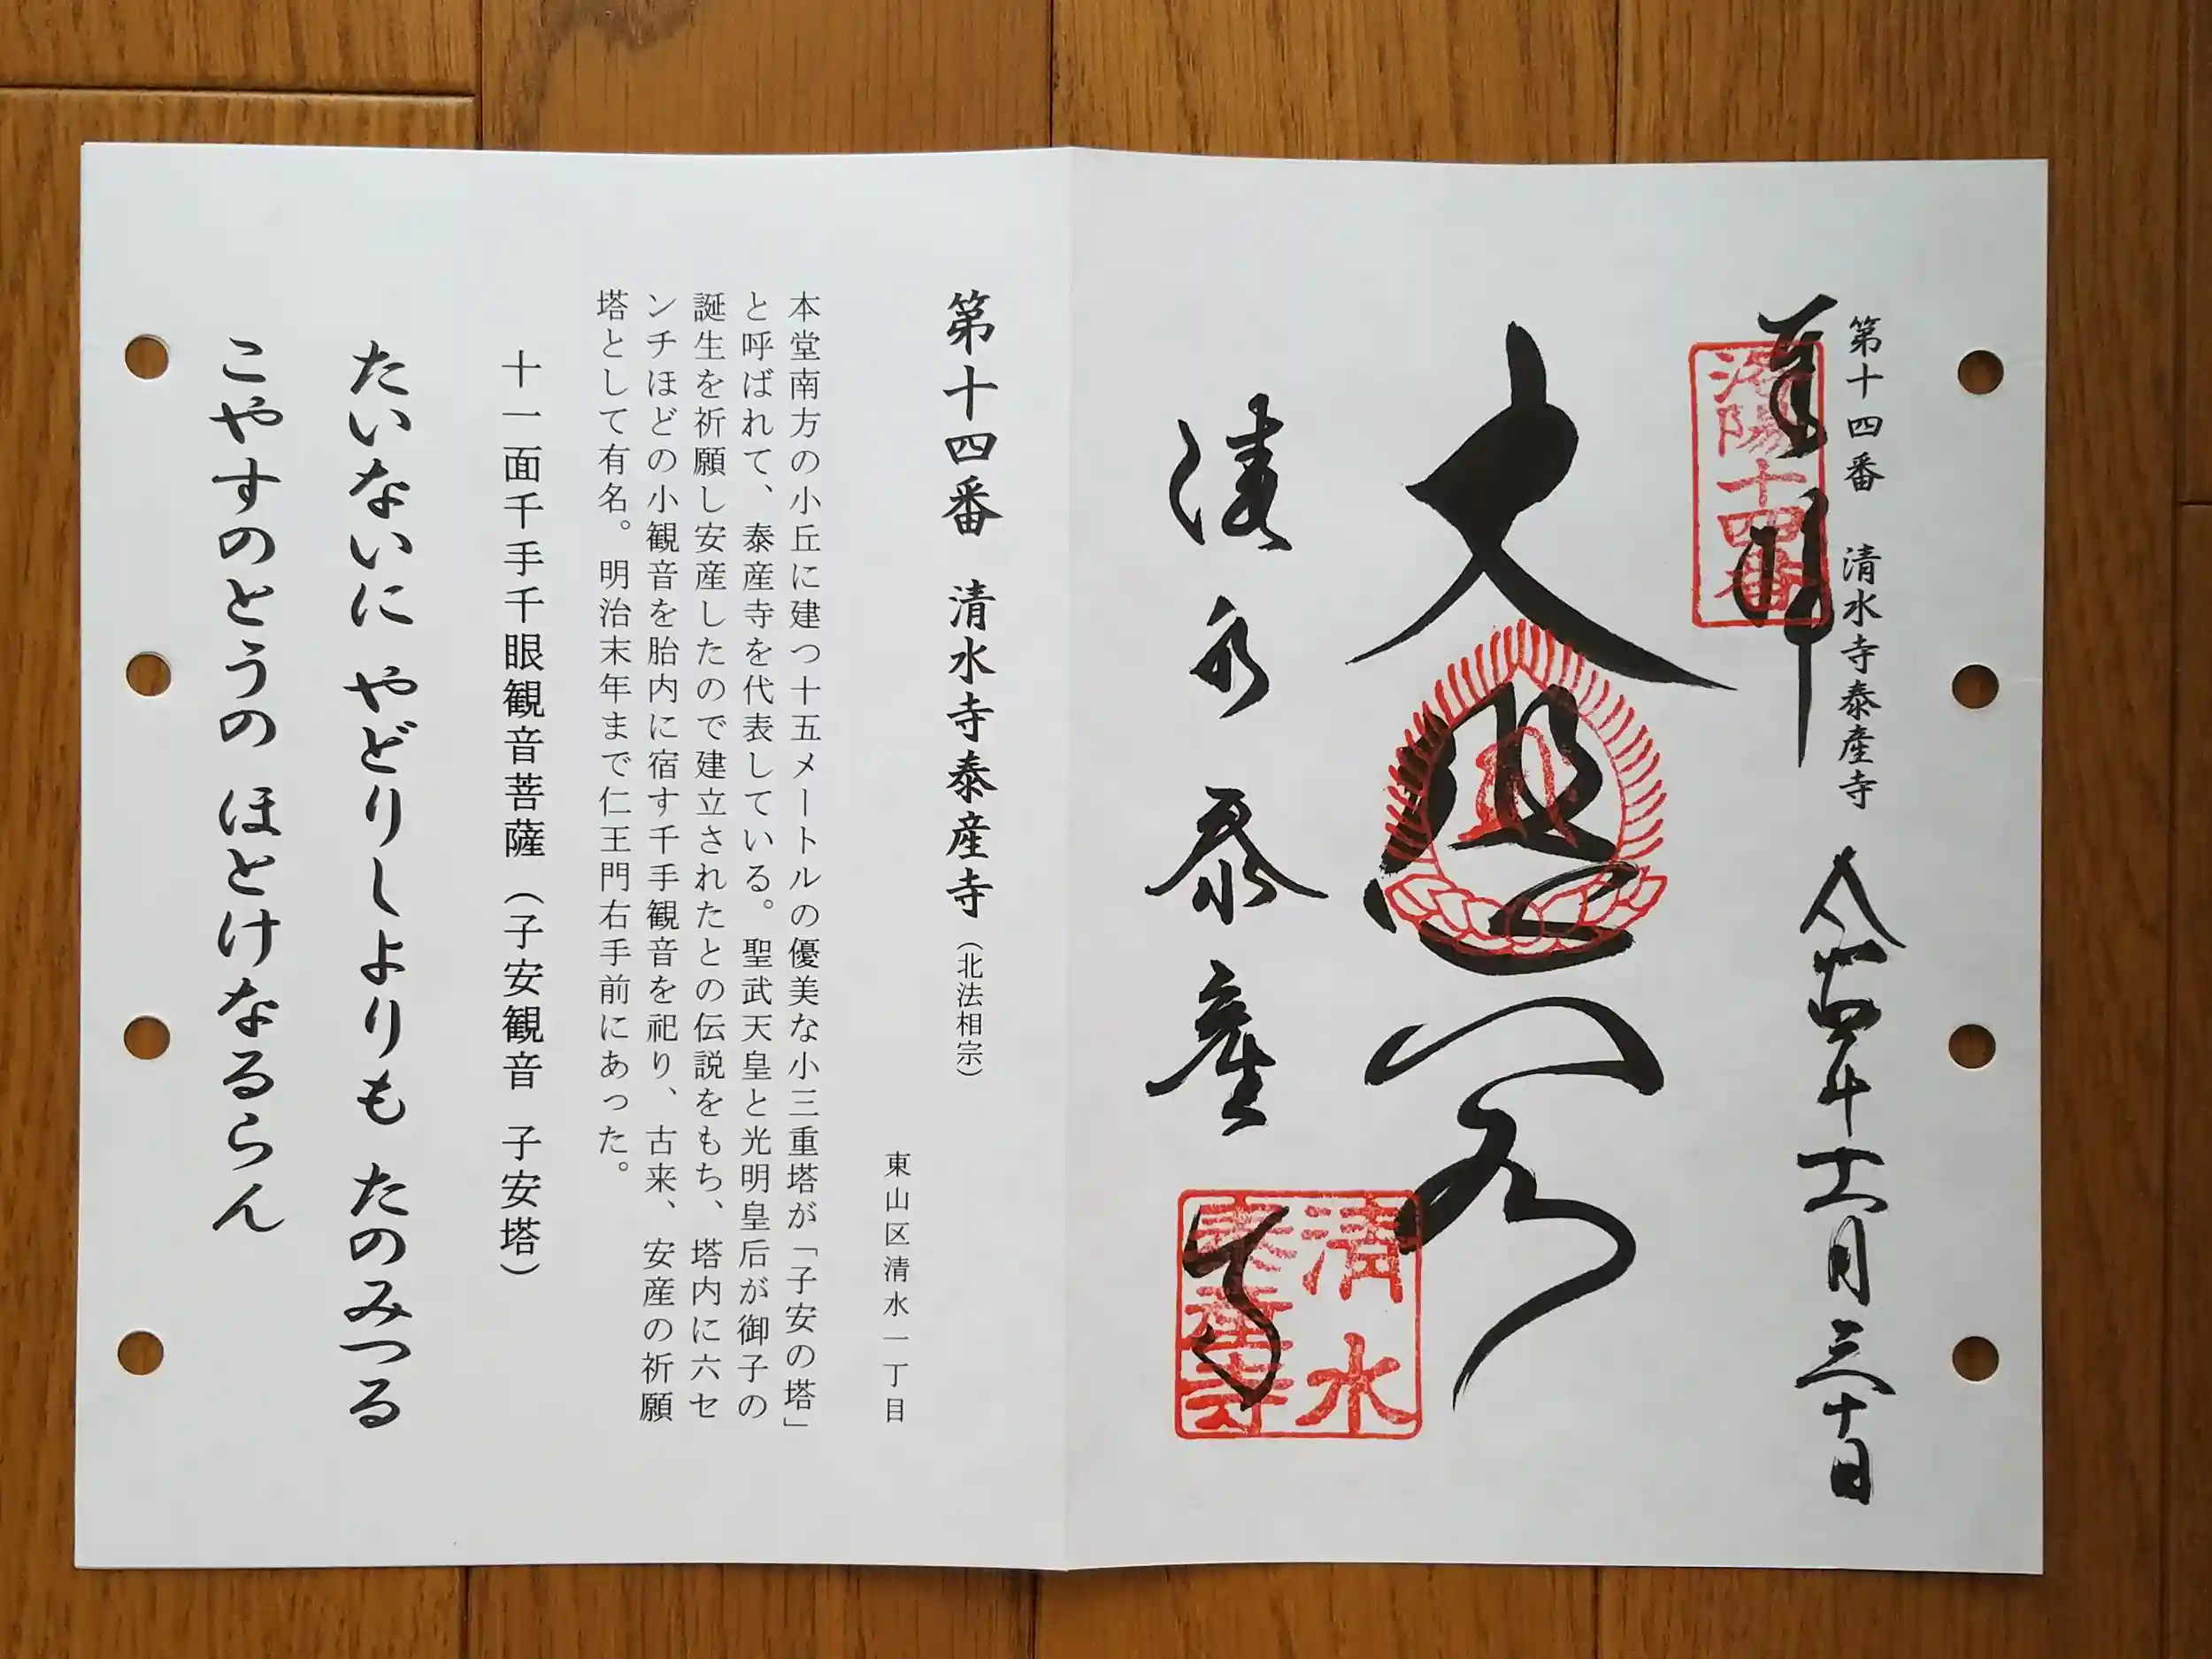 第十四番 清水寺泰産寺
奉拝
洛陽十四番
令和四年十一月三十日
大悲閣
清水泰産寺
清水
泰産寺
第十四番 清水寺泰産寺（北法相宗）
東山区清水一丁目
本堂南方の小丘に建つ十五メートルの優美な小三重塔が「子安の塔」
と呼ばれて、泰産寺を代表している。聖武天皇と光明皇后が御子の
誕生を祈願し安産したので建立されたとの伝説をもち、塔内に六セ
ンチほどの小観音を胎内に宿す千手観音を祀り、古来、安産の祈願
塔として有名。明治末年まで仁王門右手前にあった。
十一面千手千眼観音菩薩（子安観音 子安塔）
たいないに やどりしよりも たのみつる
こやすのとうの ほとけなるらん